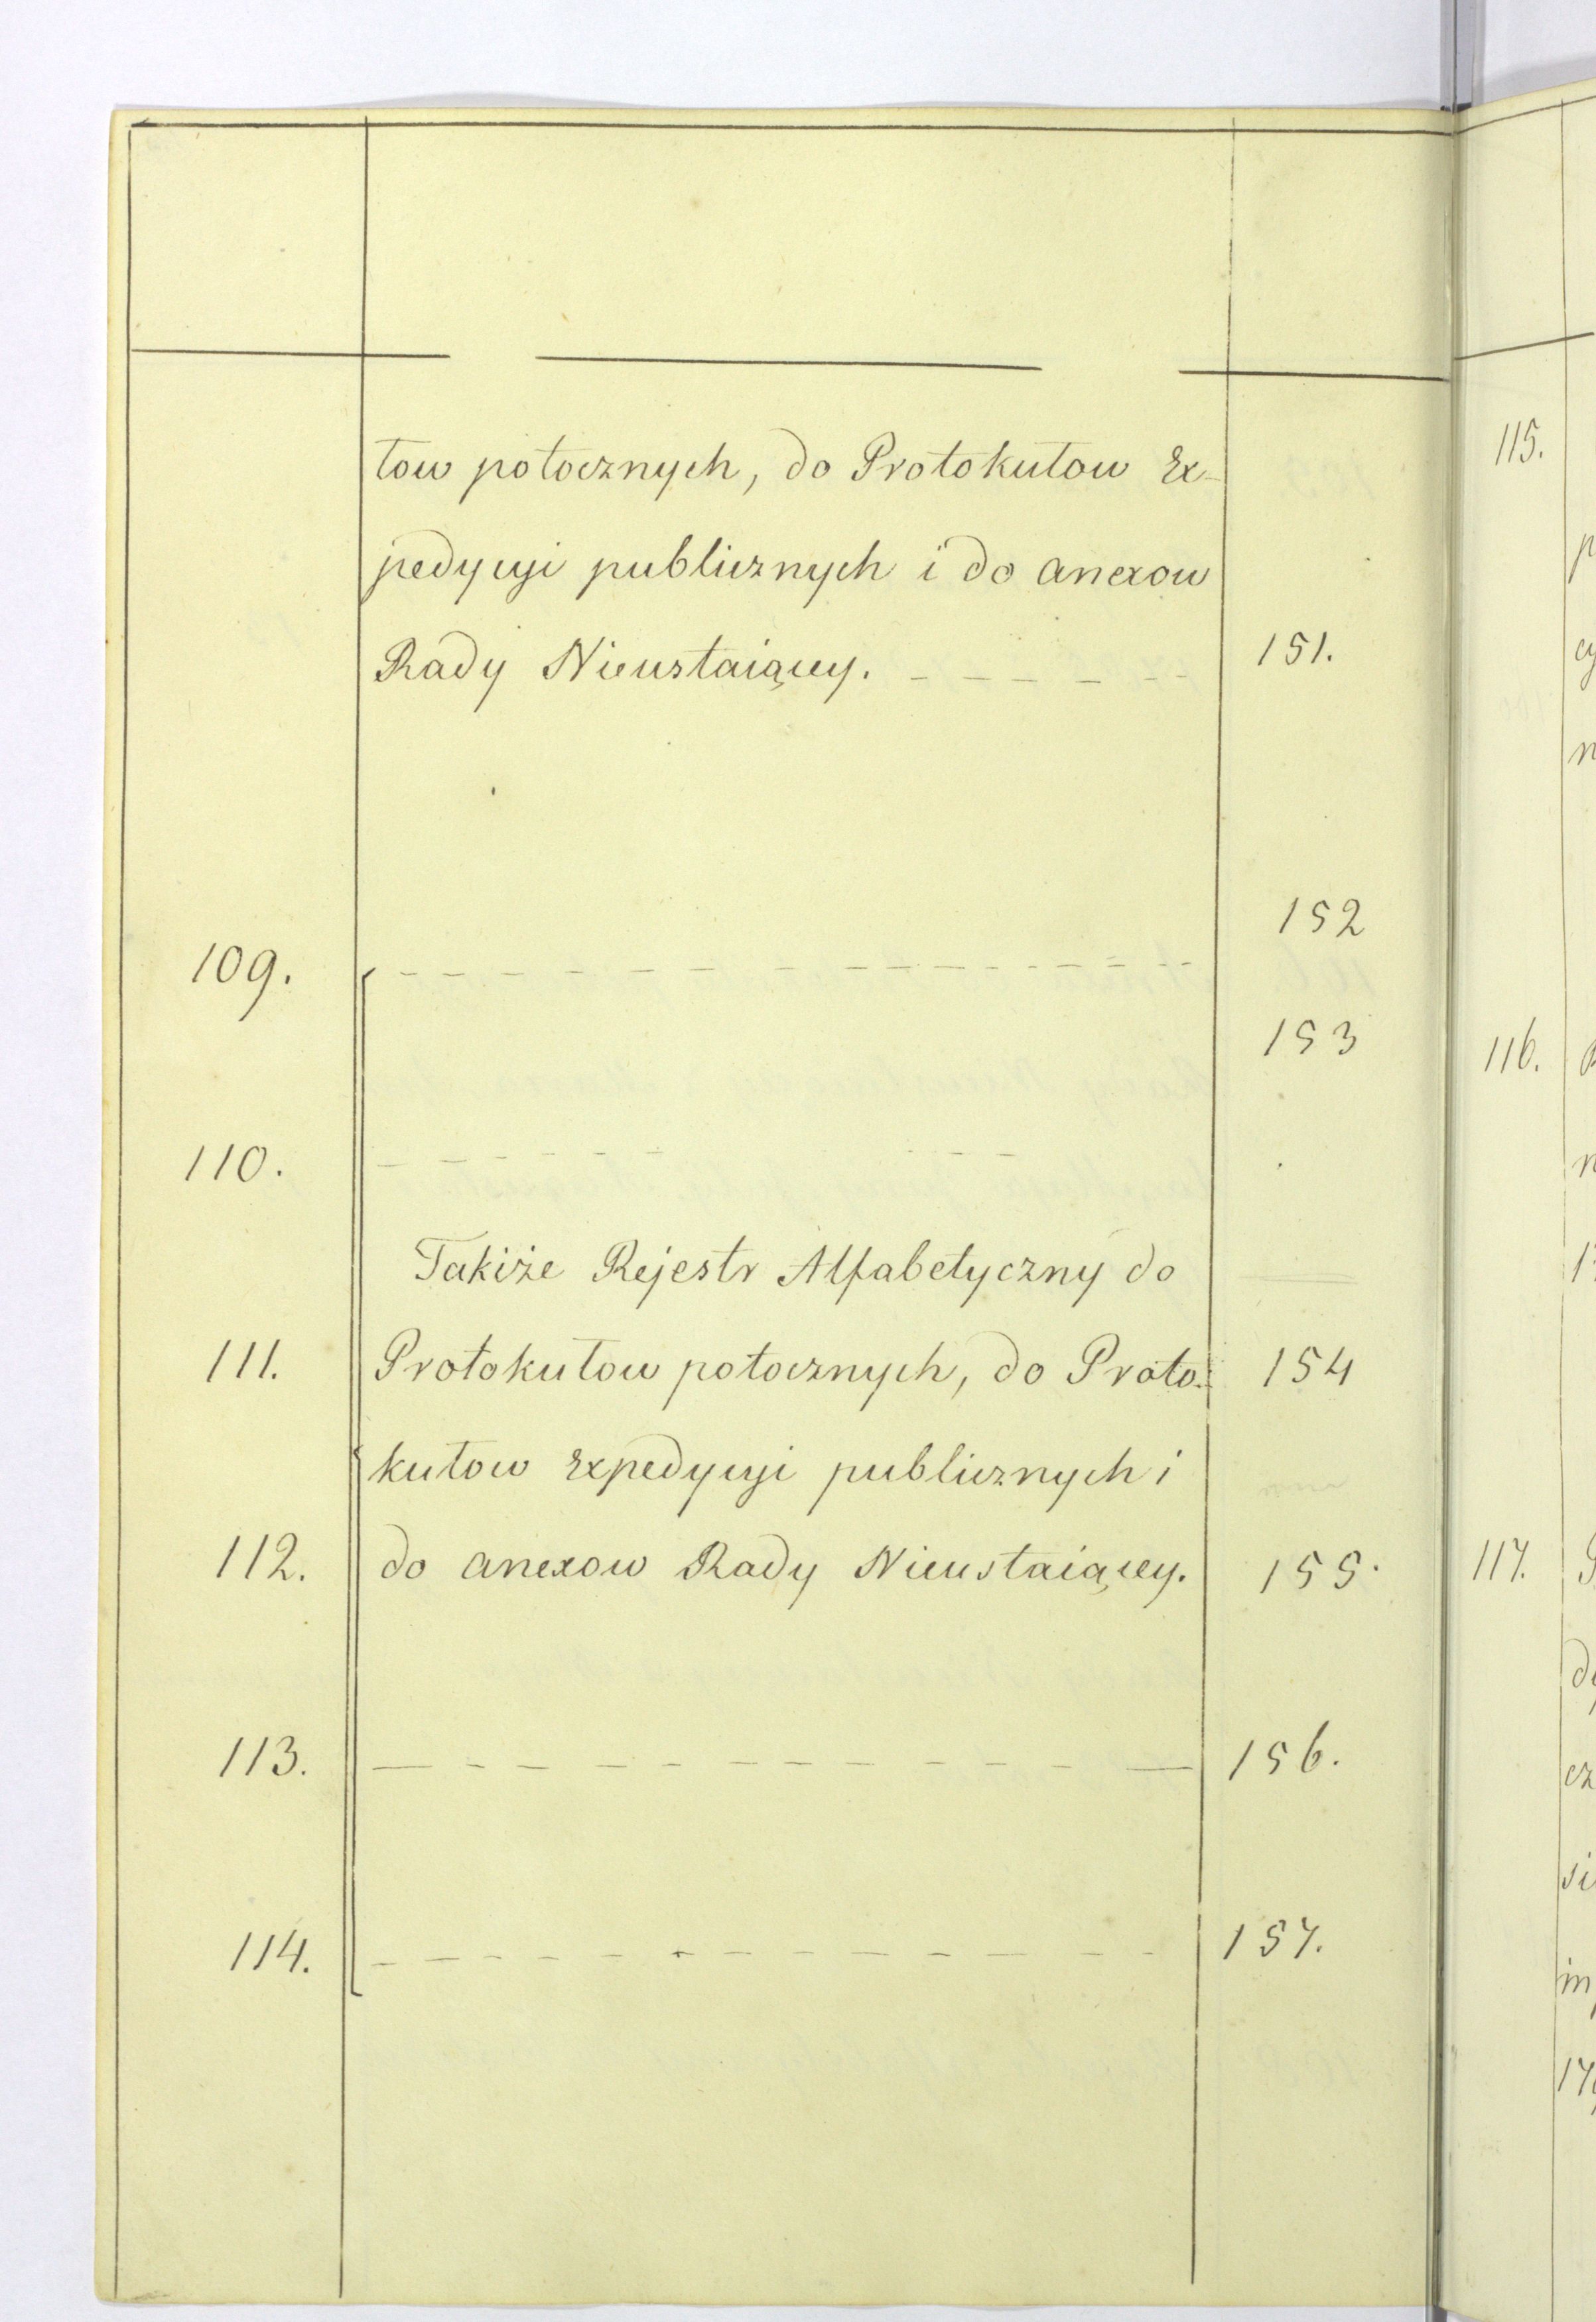 łow potocznych, do Protokułow Ex-
pedycyi publicznych i do anexow
Rady Nieustaiącey. - - - - - - 151.
152
109. - - - - - - - - - - - - - -
153
110. - - - - - - - - -
Takiże Rejestr Alfabetyczny do
111. Protokułow potocznych, do Proto- 154
kułow Expedycyi publicznych i
112. do anexow Rady Nieustaiącey. 155.
113. - - - - - - - - - - - - - - 156.
114. - - - - - - - - - - - - - - 157.
115.
116.
117.